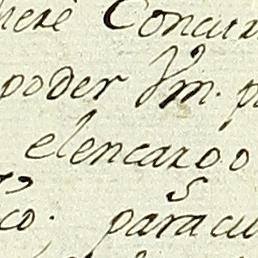 here Concur
poder Vm. p
elencargo
co. para cu